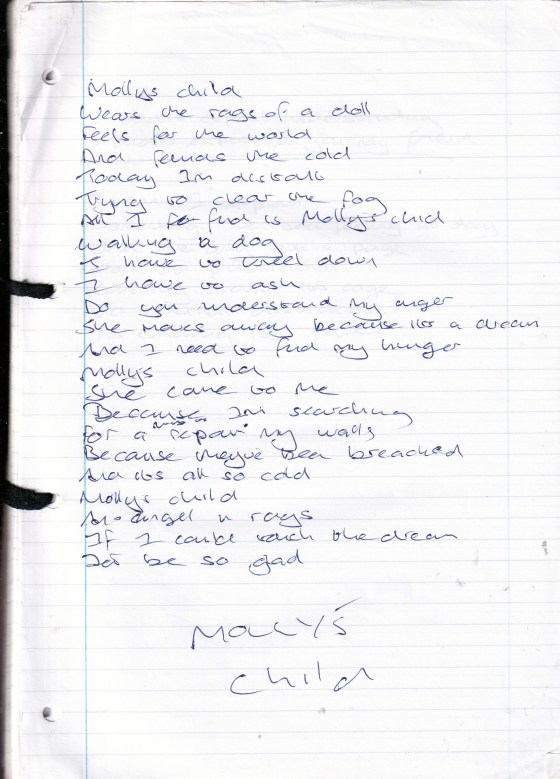 Mollys child
Wears the rags of a doll
Feels for the world
And the cold
Today Im
Trying to clear the fog
All I find is Mollys child
Walking a dog
I have to kneel down
I have to ask
Do you understand my anger
She moves away because its a dream
And I need to find my hunger
Mollys child
She came to me
Because Im searching
For a repair my walls
Because theyve been breached
And its all so cold
Mollys child
An angel in rags
If I could reach the dream
Id be so glad
MOLLYS
child